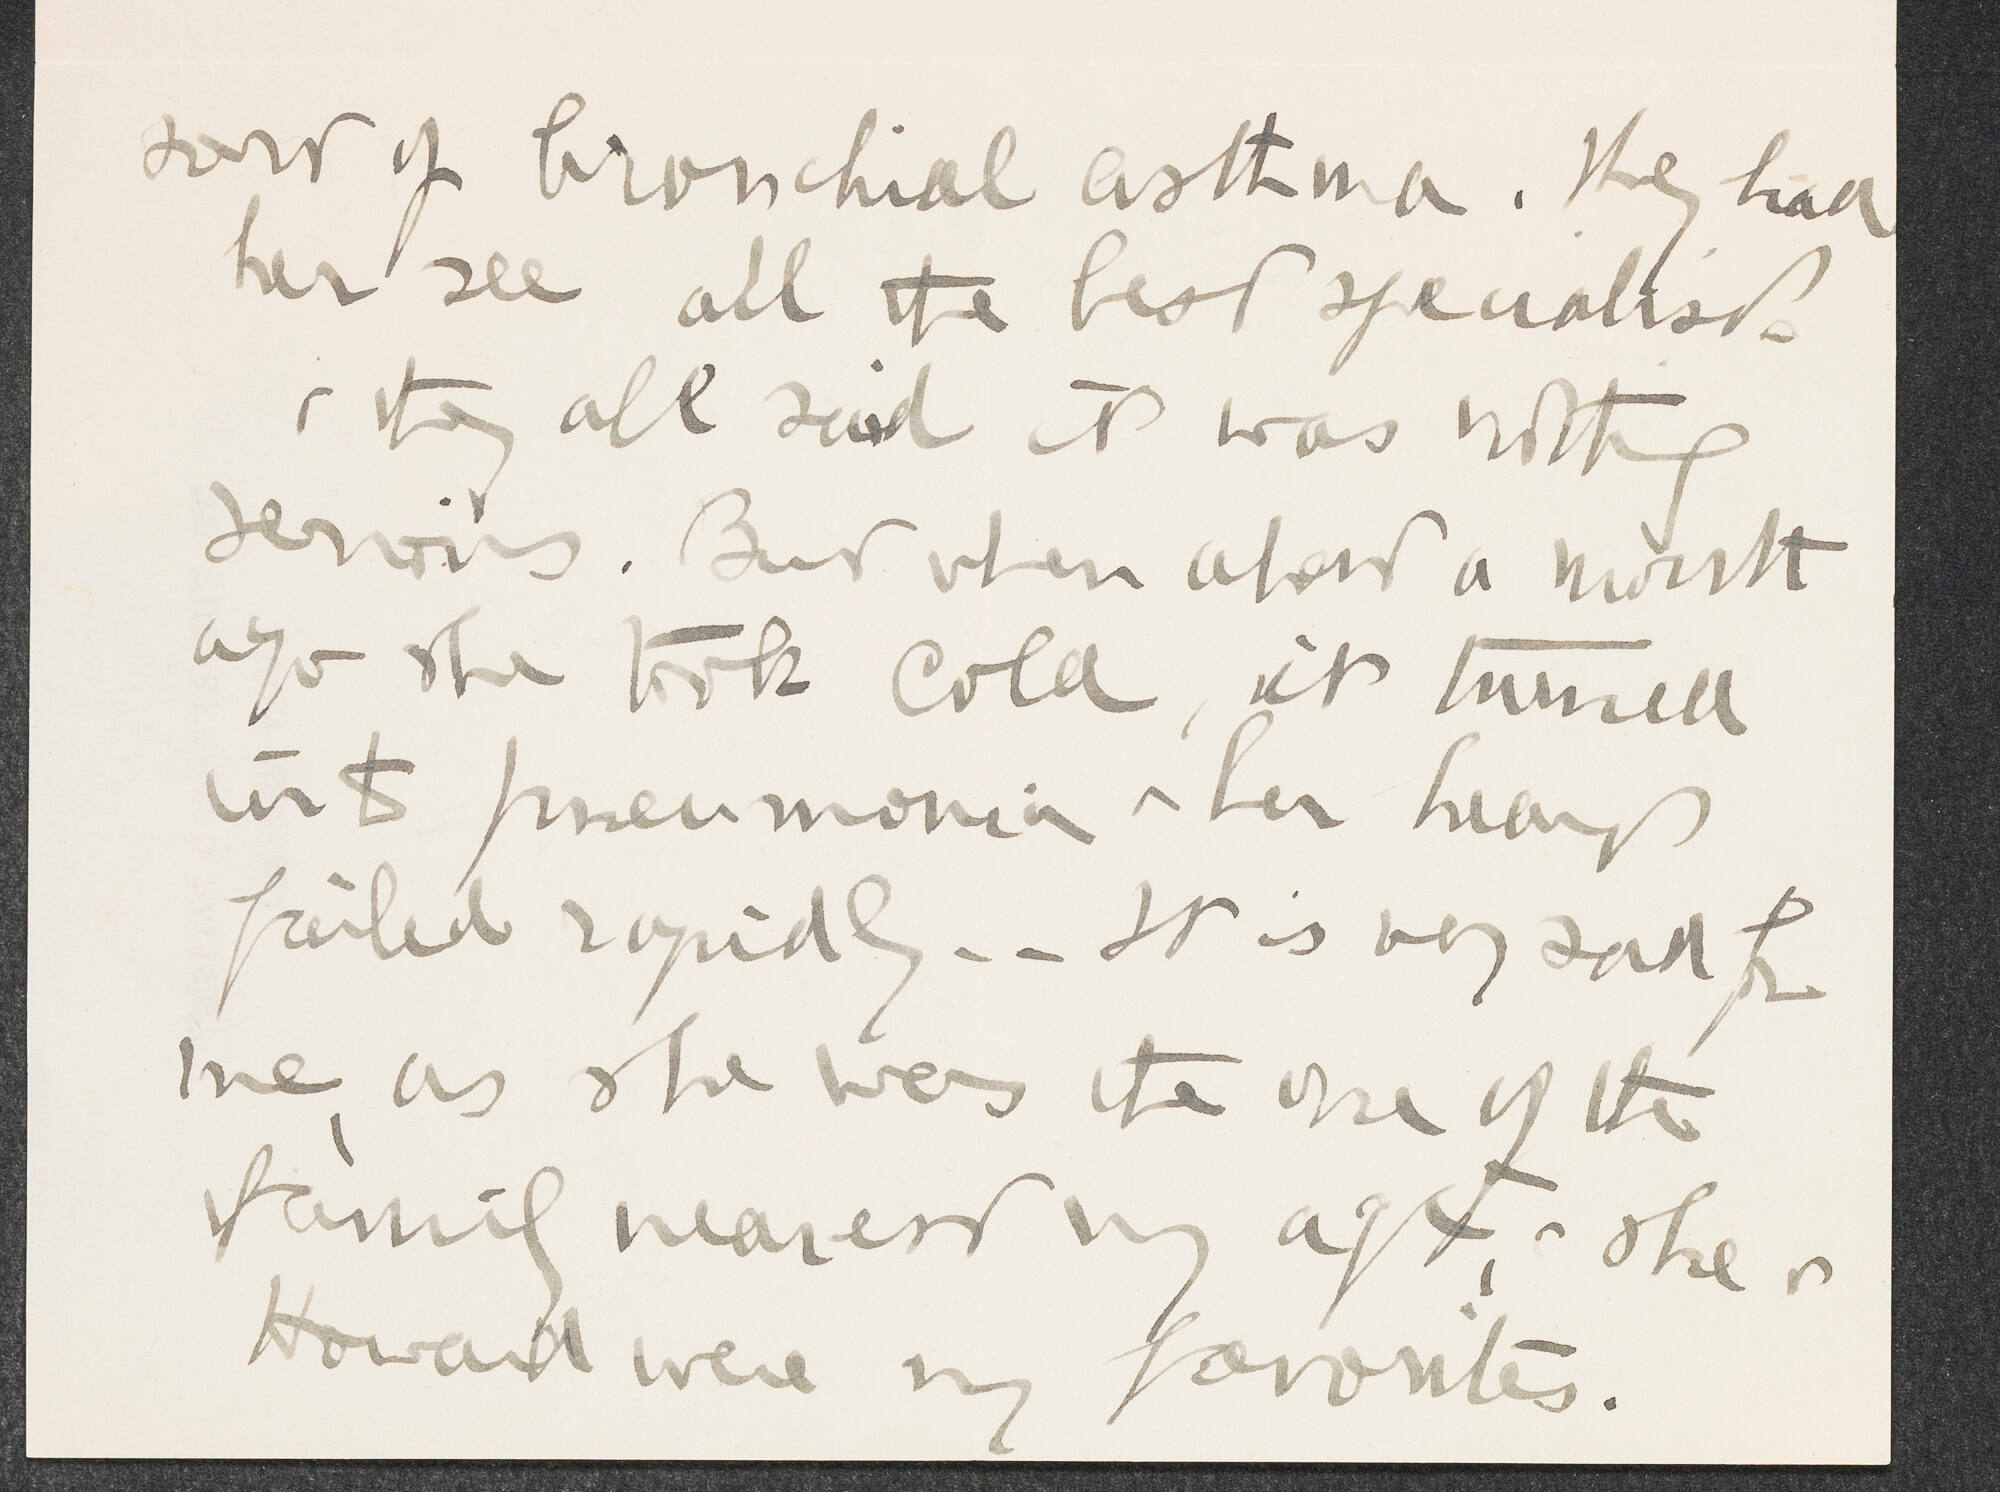 sort of bronchial asthma. They had
her see all the best specialists
& they all said it was nothing
serious. But when about a month
ago she took cold, it turned
into pneumonia & her heart
failed rapidly -- It is very sad for
me, as she was the one of the
family nearest my age, & she &
Howard were my favorites.